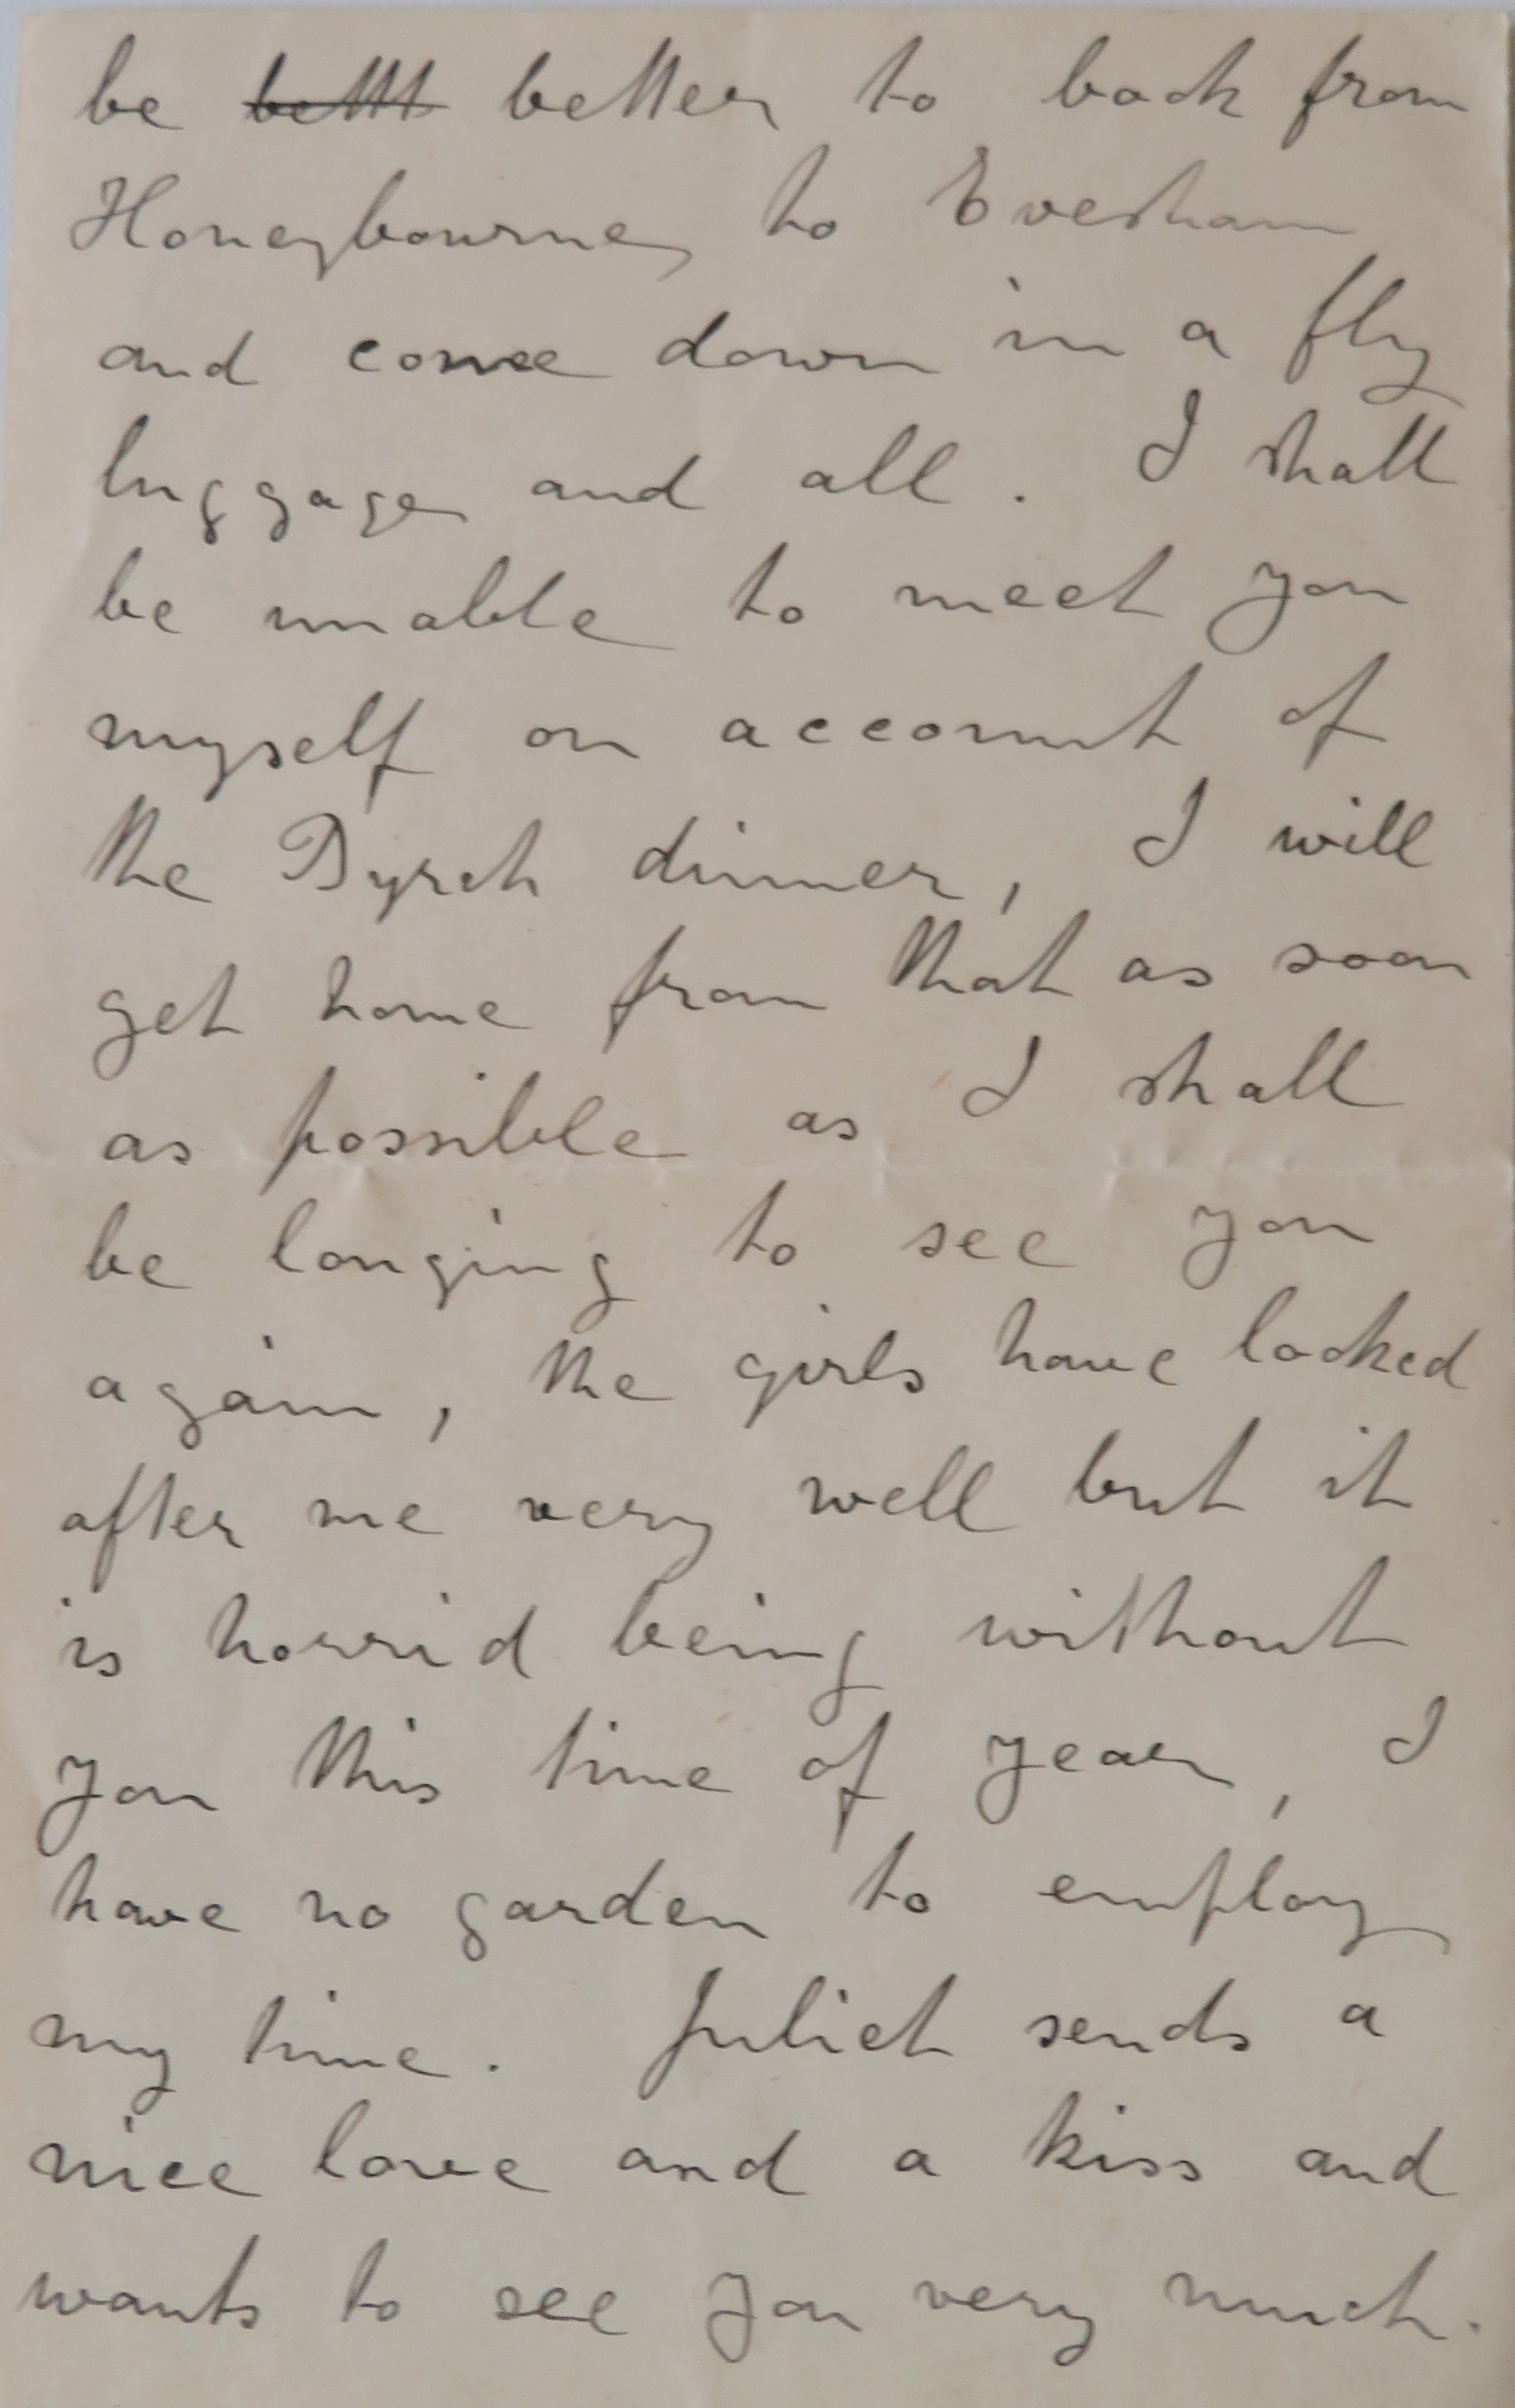 be bettt better to back from
Honeybourne to Evesham
and come down in a fly
luggage and all. I shall
be unable to meet you
myself on account of
the dinner, I will
get home from that as soon
as possible as I shall
be longing to see you
again, the girls have looked
after me very well but it
is horrid being without
you this time of year, I
have no garden to employ
my time. Juliet sends a
nice love and a kiss and
wants to see you very much.